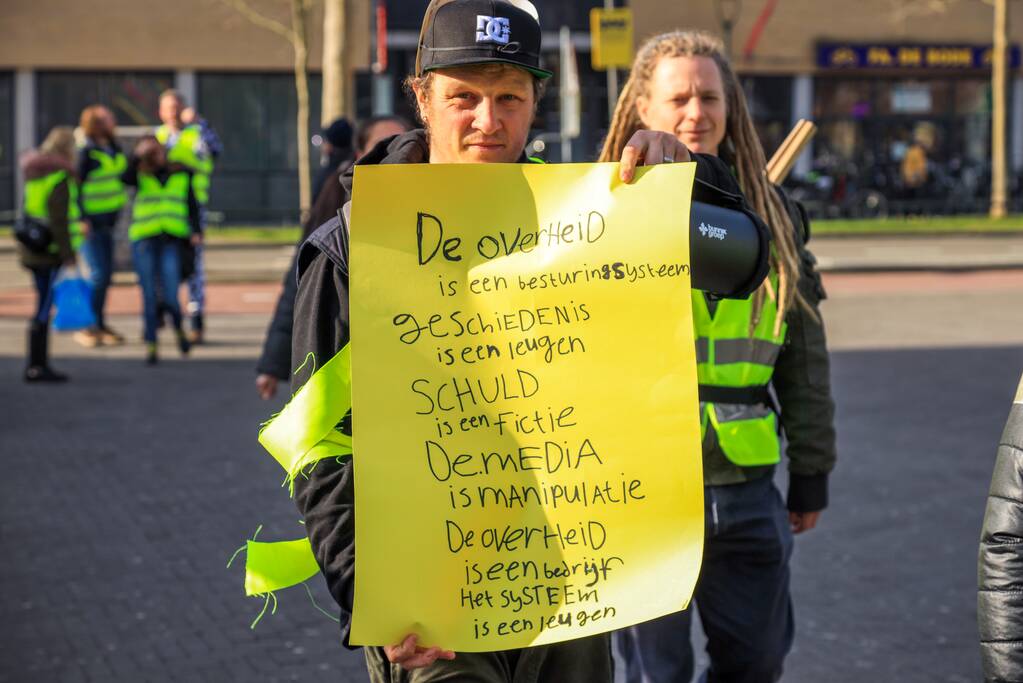 DC
De overHeiD
is een besturingssysteem
gesCHiEDENIS
is een leugen
SCHULD
is een fictie
De.mEDiA
is mANipulAtie
De overHeiD
is een bedrijf
Het sySTEEm
is een leugen
bunnik
groep